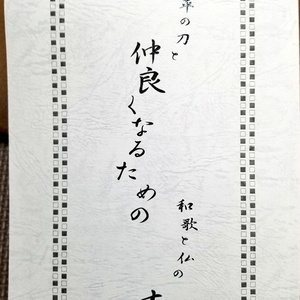 の刀と
仲良くなるための
和歌と仏の